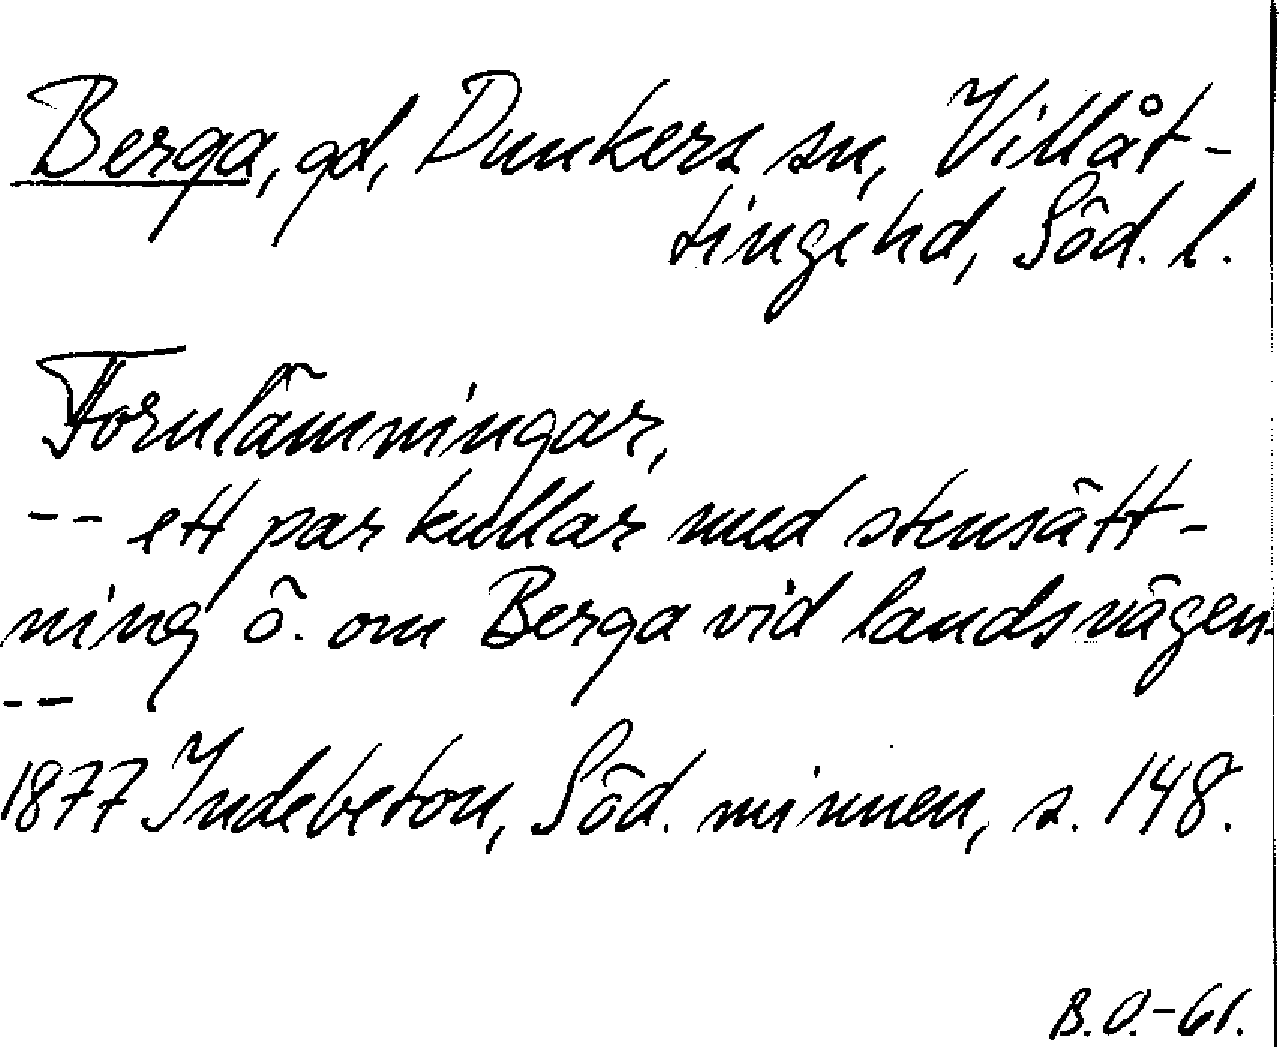 Berga, gd, Dunkers sn, Villåt-
tinge hd, Söd. l.
Fornlämningar,
-- ett par kullar med stensätt-
ning ö. om Berga vid landsvägen.
--
1877 Indebetou, Söd. minnen, s. 148.
B.O.-61.